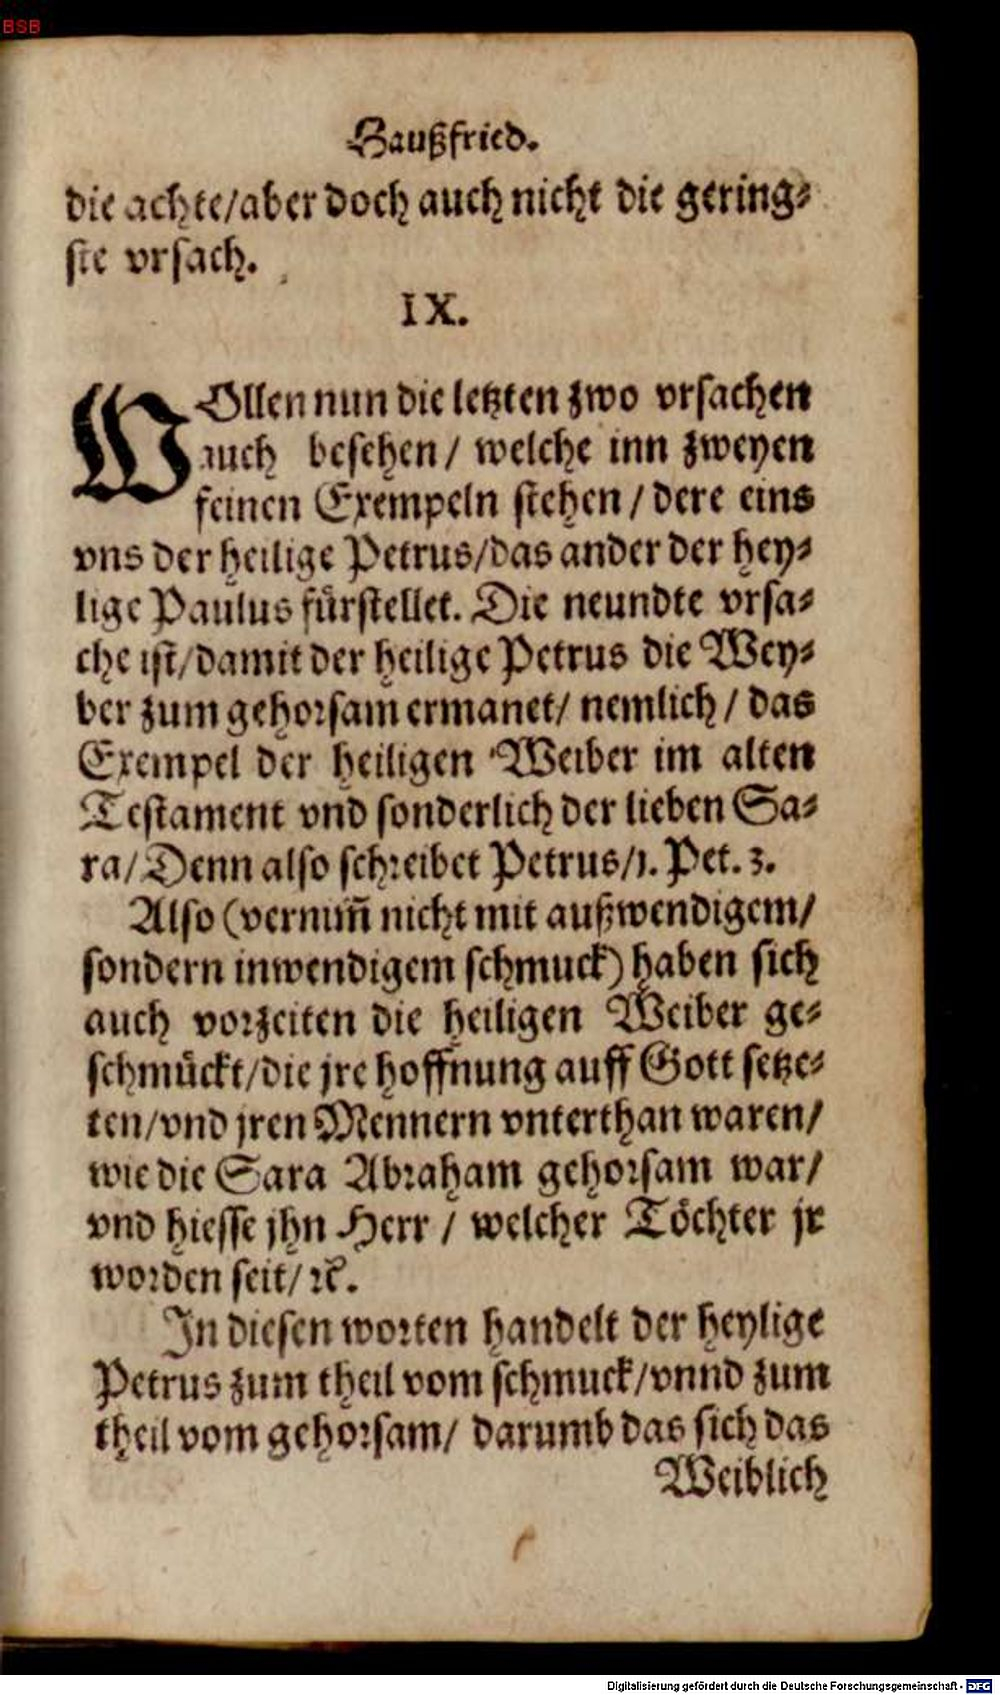 BSB
Haußfried.
die achte/aber doch auch nicht die gering⸗
ste vrsach.
IX.
WOllen nun die letzten zwo vrsachen
auch besehen/ welche inn zweyen
feinen Exempeln stehen/ dere eins
vns der heilige Petrus/das ander der hey⸗
lige Paulus fürstellet. Die neundte vrsa⸗
che ist/damit der heilige Petrus die Wey⸗
ber zum gehorsam ermanet/ nemlich/ das
Exempel der heiligen Weiber im alten
Testament vnd sonderlich der lieben Sa⸗
ra/Denn also schreibet Petrus/1. Pet. 3.
Also (vernim̃ nicht mit außwendigem/
sondern inwendigem schmuck) haben sich
auch vorzeiten die heiligen Weiber ge⸗
schmückt/die jre hoffnung auff Gott setze⸗
ten/vnd jren Mennern vnterthan waren/
wie die Sara Abraham gehorsam war/
vnd hiesse jhn Herr / welcher Töchter jr
worden seit/ ꝛc.
In diesen worten handelt der heylige
Petrus zum theil vom schmuck/vnnd zum
theil vom gehorsam/ darumb das sich das
Weiblich
Digitalisierung gefördert durch die Deutsche Forschungsgemeinschaft - DFG